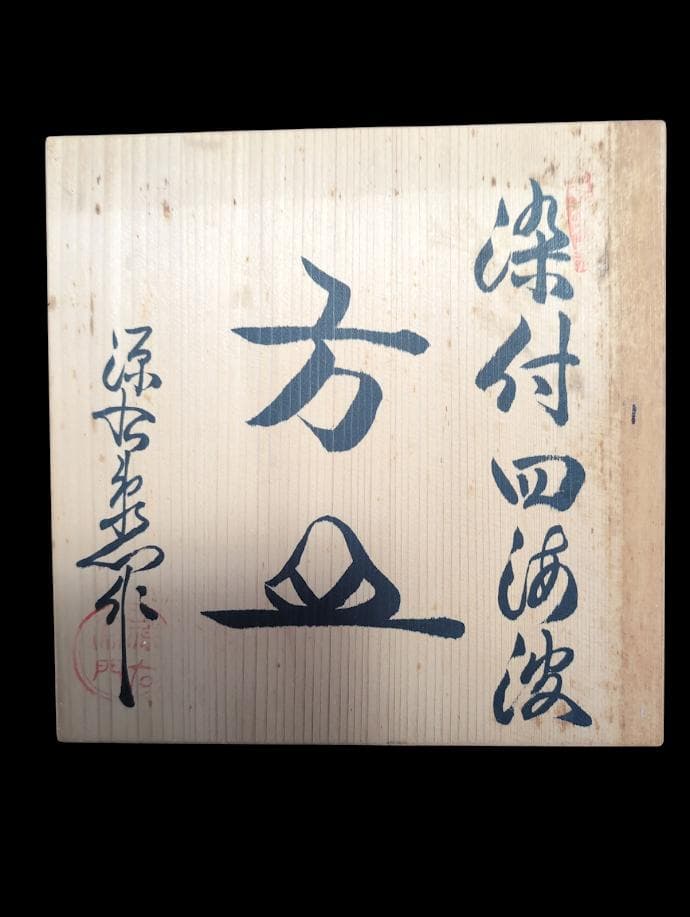 染付四海波
方皿
源右衛門作